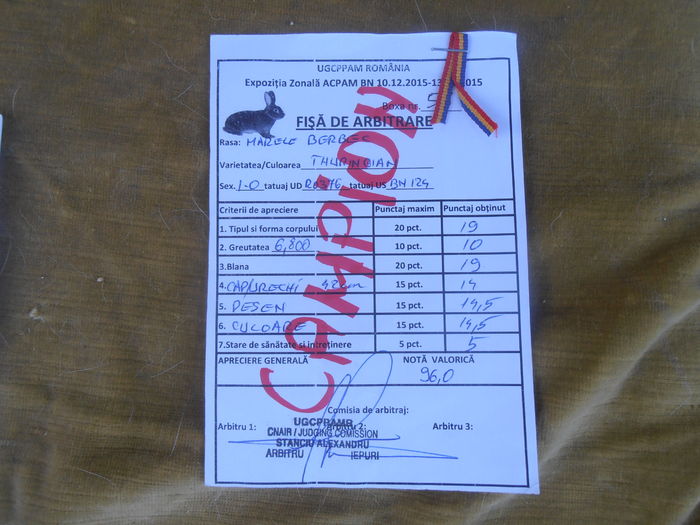 UGCPPAM ROMÂNIA
Expoziția Zonală ACPAM BN 10.12.2015-13 2015
Boxa nr. 5
FIŞĂ DE ARBITRARE
Rasa: MARELE BERBEC
Varietatea/Culoarea THURINGIAN
Sex. 1-0 tatuaj UD RO376 tatuaj US BN 124
Criterii de apreciere Punctaj maxim Punctaj obținut
1. Tipul si forma corpului 20 pct. 19
2. Greutatea 6,800 10 pct. 10
3.Blana 20 pct. 19
4. CAP/URECHI 42cm 15 pct. 14
5. DESEN 15 pct. 14,5
6. CULOARE 15 pct. 14,5
7.Stare de sănătate si intreținere 5 pct. 5
APRECIERE GENERALĂ NOTĂ VALORICĂ
96,0
CAMPION
Comisia de arbitraj:
Arbitru 1: Arbitru 2: Arbitru 3:
CNAIR / JUDGING COMISSION
STANCIU ALEXANDRU
ARBITRU IEPURI